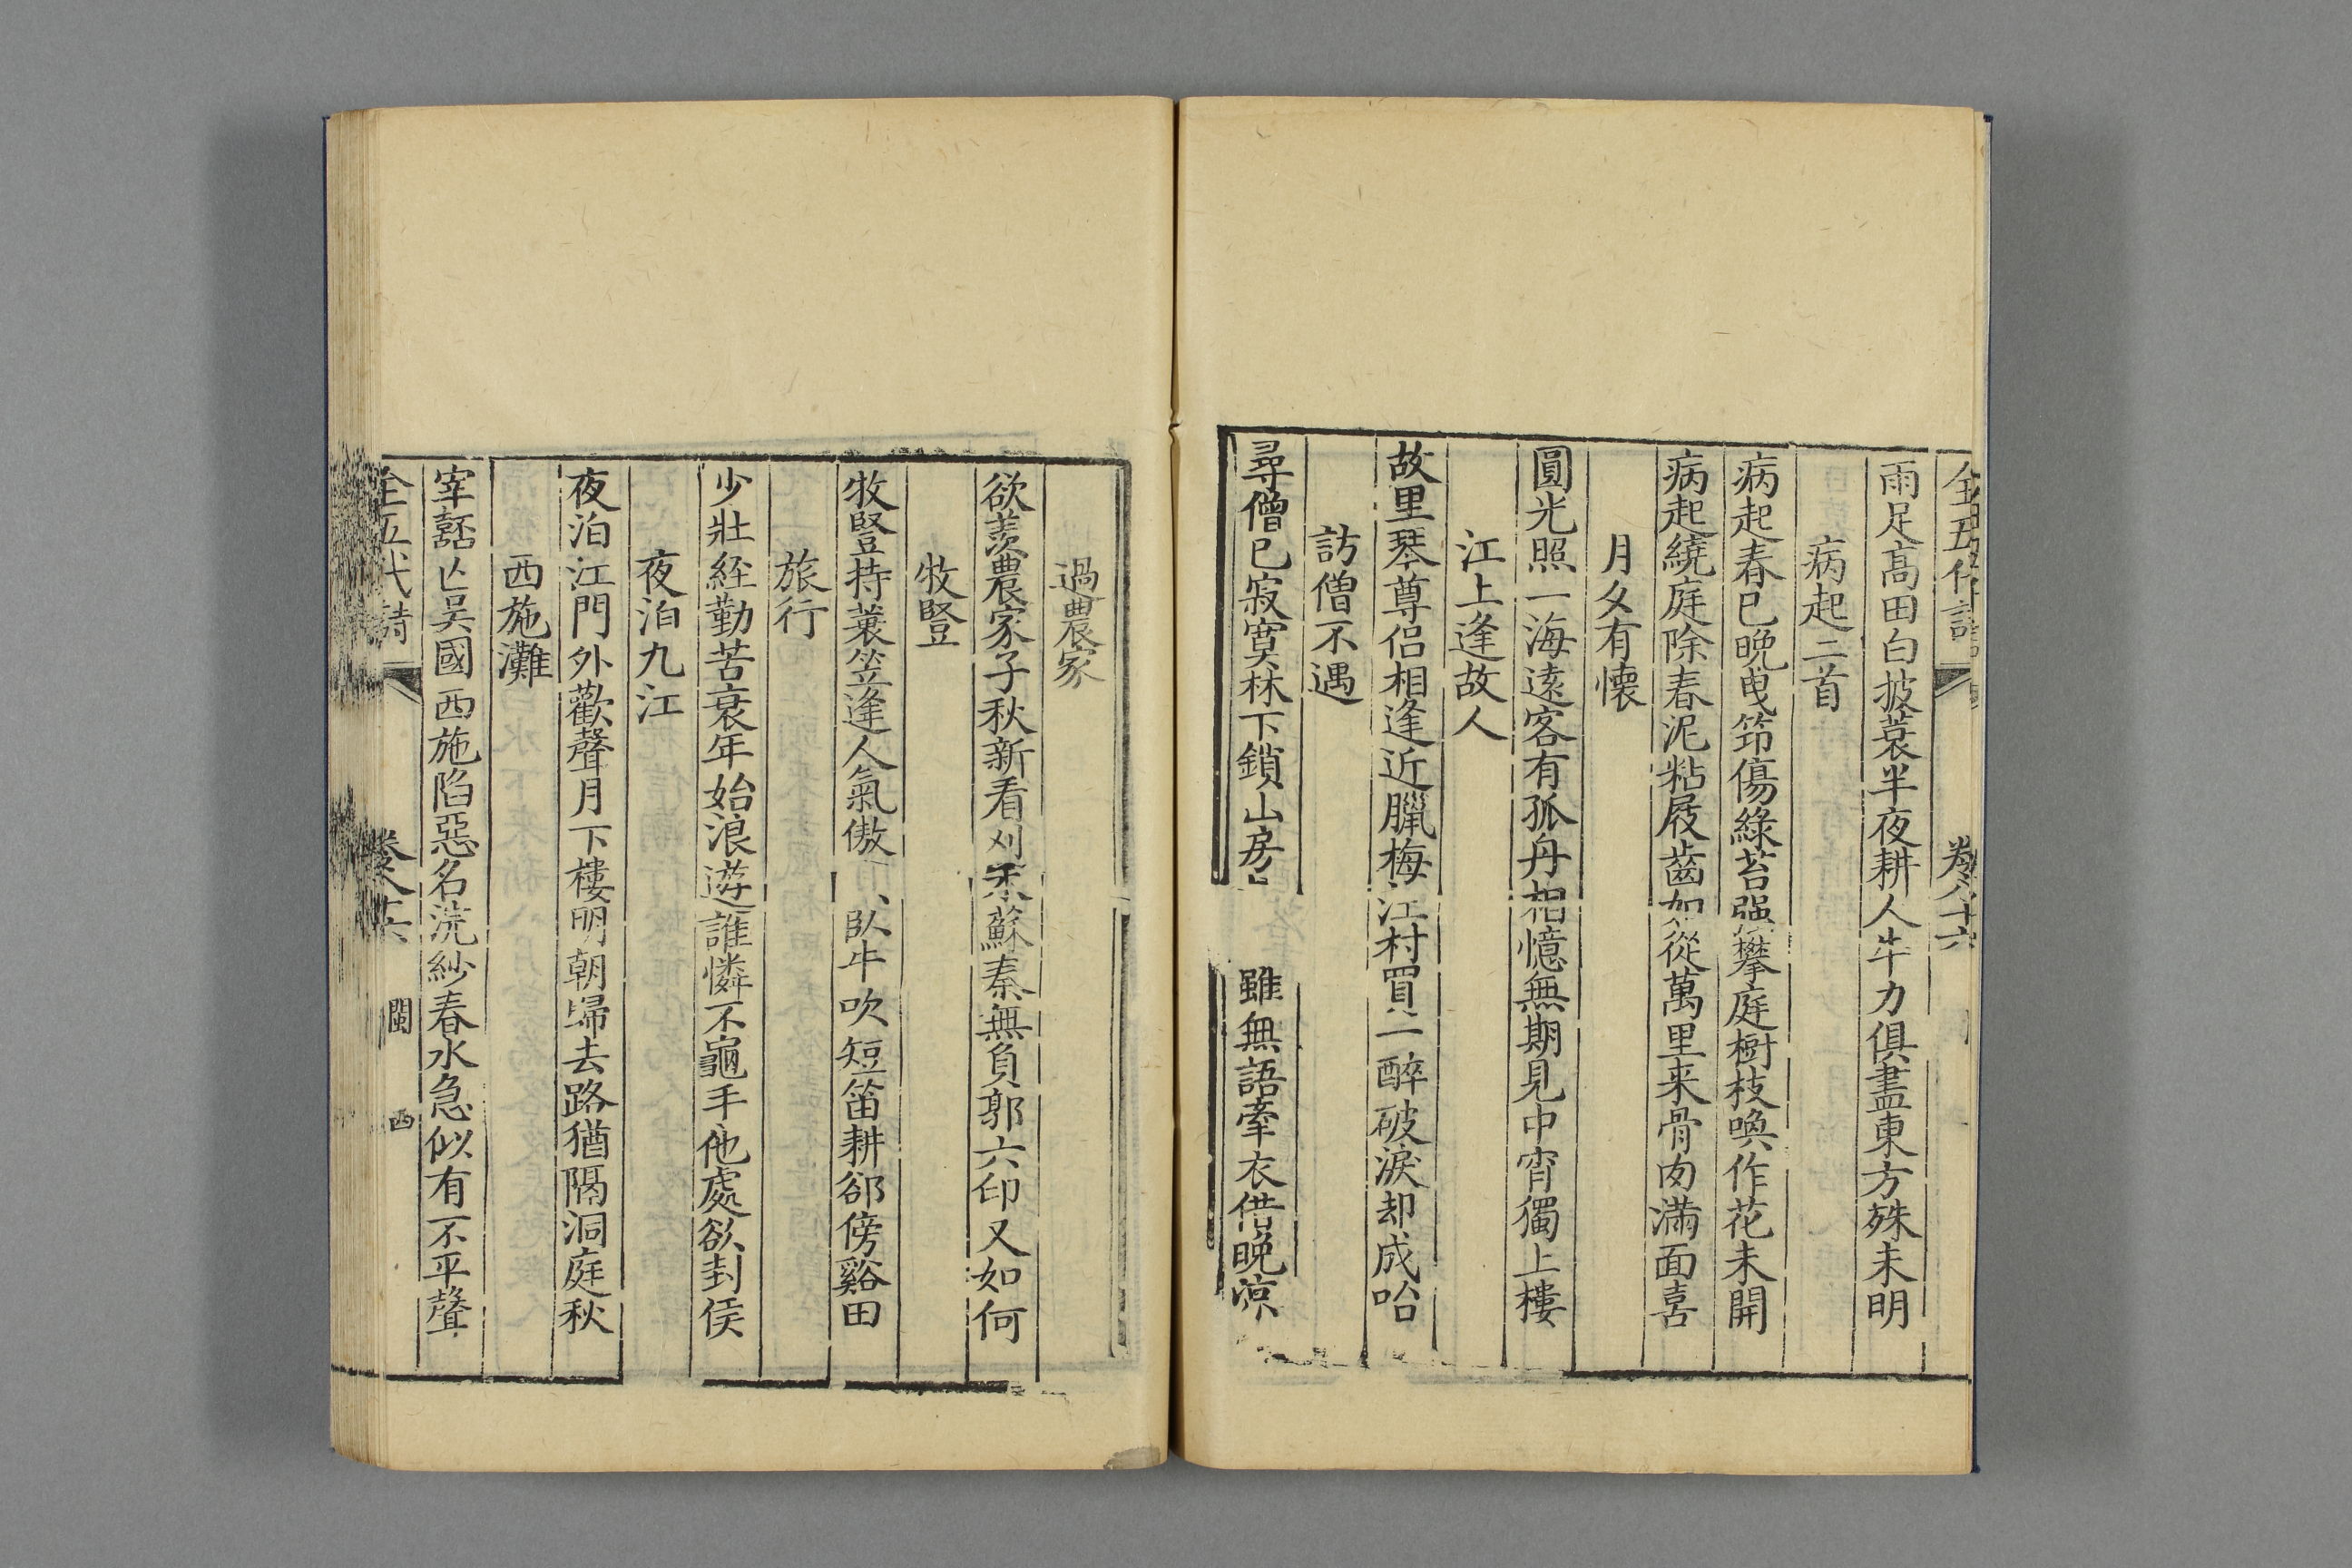 全五代詩 卷八十六
雨足髙田白披蓑半夜耕人牛力俱盡東方殊未明
病起二首
病起春已晚曳笻傷綠苔強攀庭樹枝喚作花未開
病起繞庭除春泥粘屐齒如從萬里来骨肉滿面喜
月夕有懐
圓光照一海遠客有孤舟相憶無期見中宵獨上樓
江上逢故人
故里琴尊侣相逢近臘梅江村買一醉破淚却成咍
訪僧不遇
尋僧已寂寞林下鎖山房 雖無語牽衣借晚涼
過農家
欲羡農家子秋新看刈禾蘇秦無負郭六印又如何
牧豎
牧豎持蓑笠逢人氣傲 臥牛吹短笛耕郤傍谿田
旅行
少壯經勤苦衰年始浪遊誰憐不龜手他處欲封侯
夜泊九江
夜泊江門外歡聲月下樓明朝歸去路猶隔洞庭秋
西施灘
宰嚭亾吳國西施陷惡名浣紗春水急似有不平聲
全五代詩 卷八十六 閩 西